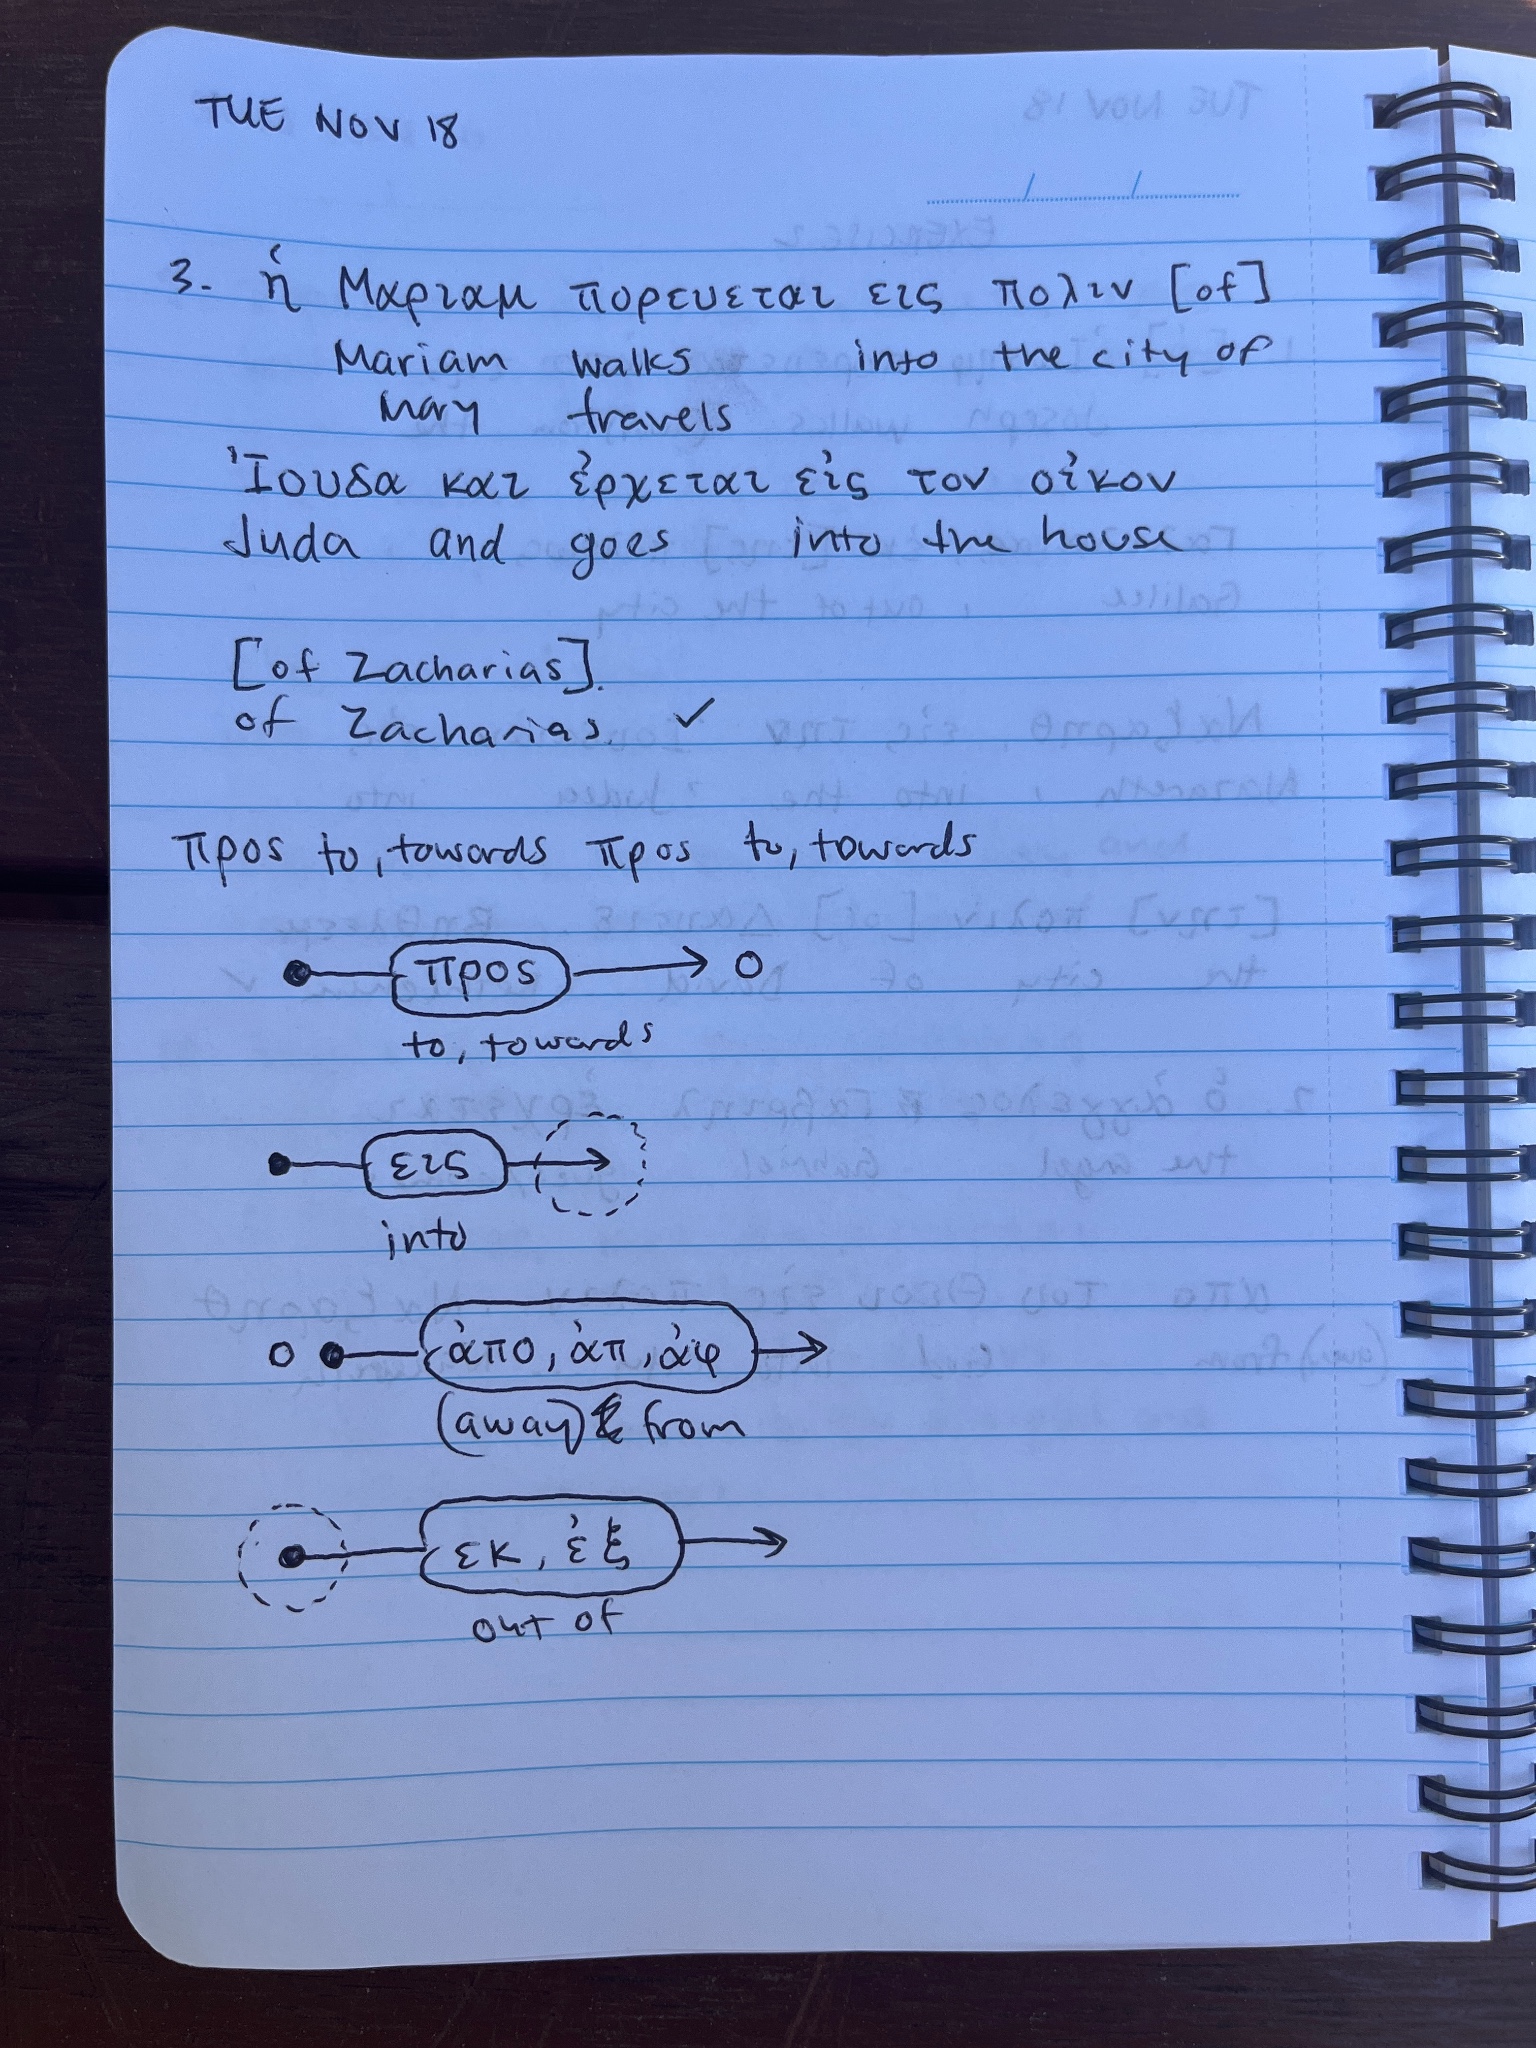 TUE NOV 18
3. ἡ Μαριαμ πορευεται εις πολιν [of]
Mariam walks into the city of
Mary travels
Ἰουδα και ἐρχεται εἰς τον οἰκον
Juda and goes into the house
[of Zacharias].
of Zacharias. ✓
προς to, towards προς to, towards
προς
to, towards
εις
into
ἀπο, ἀπ, ἀφ
(away) from
εκ, ἐξ
out of